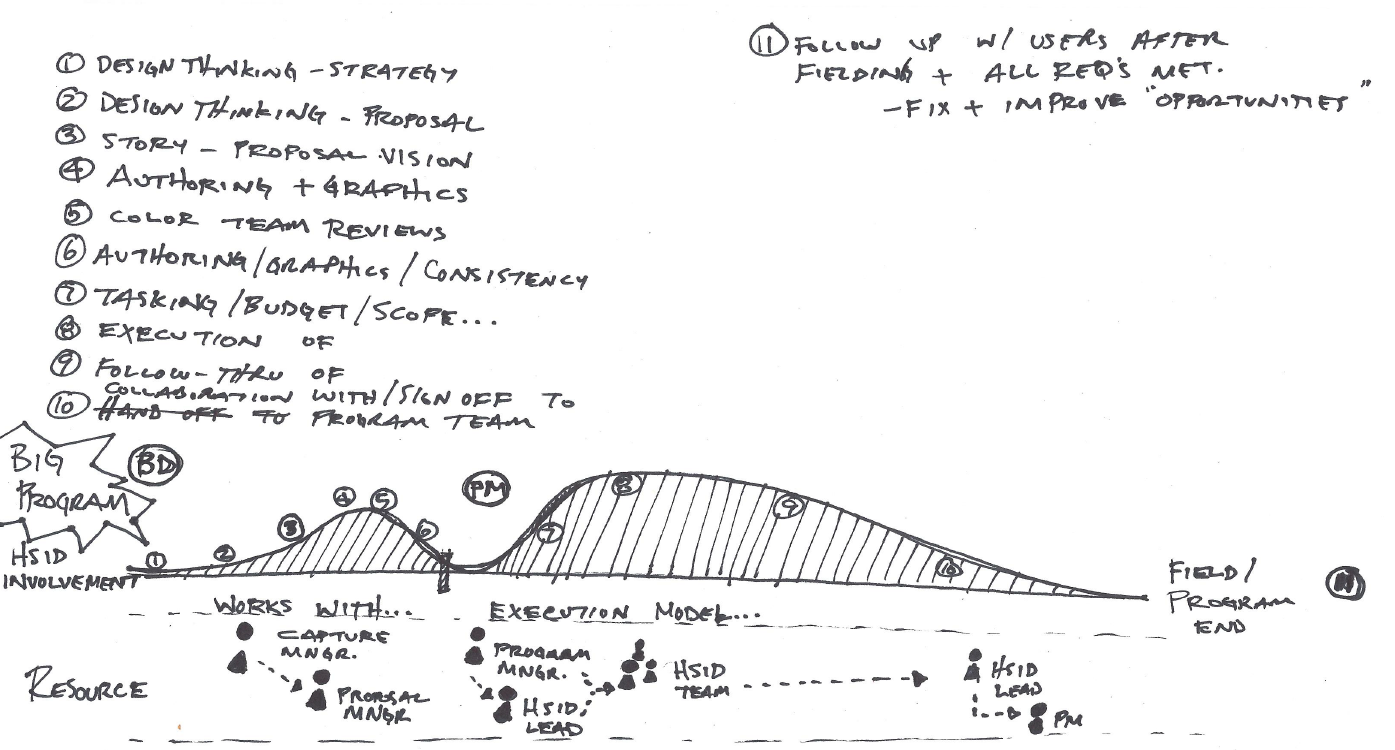 ① DESIGN THINKING - STRATEGY
② DESIGN THINKING - PROPOSAL
③ STORY - PROPOSAL VISION
④ AUTHORING + GRAPHICS
⑤ COLOR TEAM REVIEWS
⑥ AUTHORING/GRAPHICS/CONSISTENCY
⑦ TASKING/BUDGET/SCOPE...
⑧ EXECUTION OF
⑨ FOLLOW-THRU OF
COLLABORATION WITH/SIGN OFF TO
⑩ HAND OFF TO PROGRAM TEAM
⑪ FOLLOW UP W/ USERS AFTER
FIELDING + ALL REQ'S MET.
- FIX + IMPROVE "OPPORTUNITIES"
BIG
PROGRAM
BD
PM
HSID
INVOLVEMENT
① ② ③ ④ ⑤ ⑥ ⑦ ⑧ ⑨ ⑩
FIELD/
PROGRAM
END
⑪
WORKS WITH...
EXECUTION MODEL...
RESOURCE
CAPTURE
MNGR.
PROPOSAL
MNGR
PROGRAM
MNGR.
HSID
LEAD
HSID
TEAM
HSID
LEAD
PM